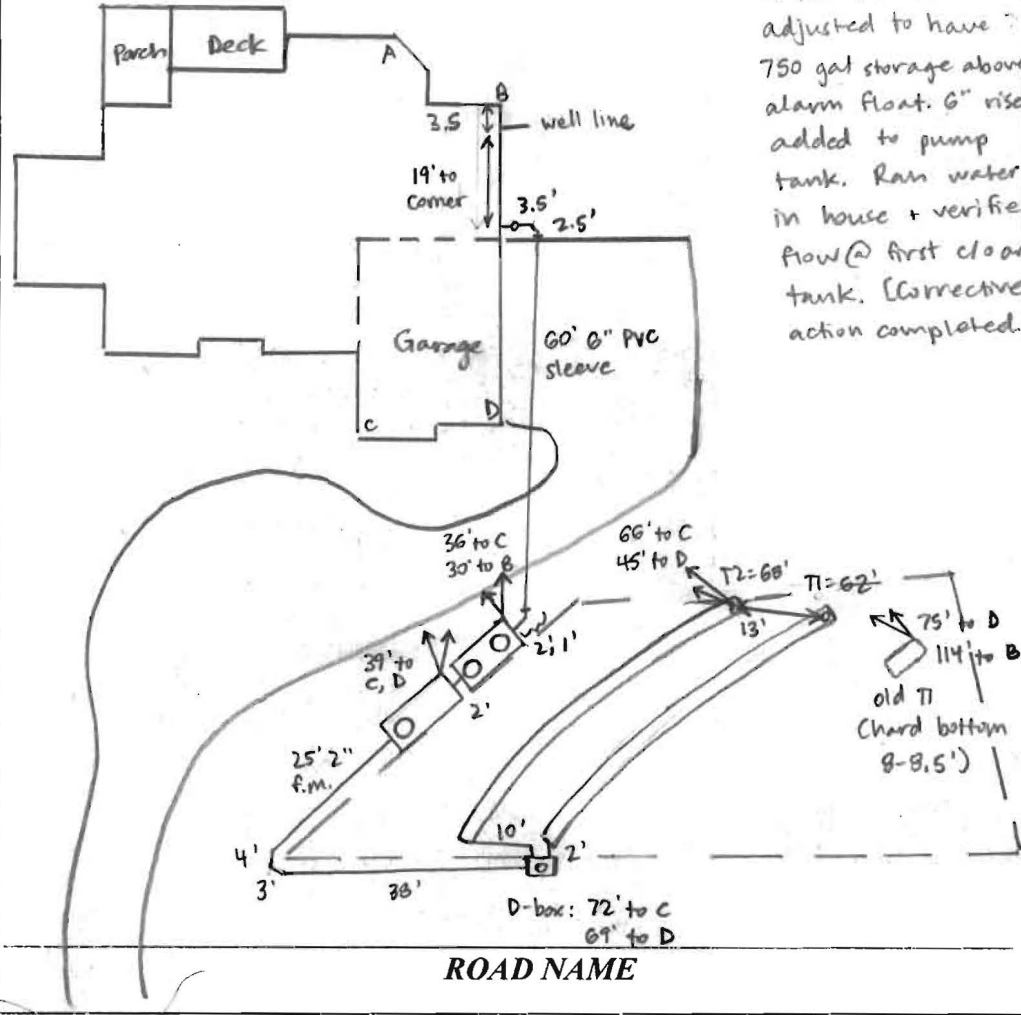 adjusted to have
750 gal storage above
alarm float. 6" rise
added to pump
tank. Ran water
in house + verifie
flow @ first clean
tank. [Corrective
action completed.
Porch
Deck
A
B
3.5
well line
19' to
corner
3.5'
2.5'
Garage
60' 6" PVC
sleeve
C
D
36' to C
30' to B
66' to C
45' to D
T2=68'
T1=62'
13'
75' to D
114' to B
2', 1'
39' to
C, D
2'
old T1
(hard bottom
8-8.5')
25' 2"
f.m.
4'
10'
2'
3'
38'
D-box: 72' to C
69' to D
ROAD NAME